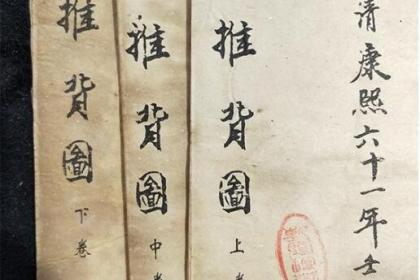 清康熙六十一年
推背圖 上卷
推背圖 中卷
推背圖 下卷